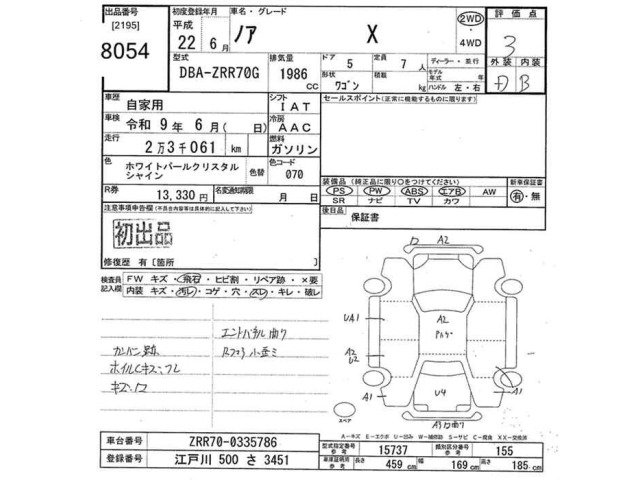 出品番号 初度登録年月 車名・グレード 評価点
[2195] 平成 2WD
8054 22 6月 ノア X ・4WD 3
型式 排気量 ドア 定員 ディーラー・並行 外装 内装
DBA-ZRR70G 1986 CC 5 7人 モデル年式 年 B
形状 ワゴン 積載 kg ハンドル 左・右
車歴 自家用 シフト IAT セールスポイント(正常に機能するものに限ります)
車検 令和 9年 6月( 日) 冷房 AAC
走行 2万3千061 km 燃料 ガソリン
色 ホワイトパールクリスタルシャイン 色替 色コード 070
装備品(純正品に限り〇をつけてください) 新車保証書
R券 13,330円 名変通知期限 月 日 PS ・ PW ・ ABS ・ エアB ・ AW 有・無
SR ナビ TV カワ
注意事項申告欄(不具合内容等は具体的に記入して下さい) 後日品 保証書
初出品
修復歴 有[箇所 ]
検査員記入欄 FW キズ・飛石・ヒビ割・リペア跡・×要
内装 キズ・汚レ・コゲ・穴・スレ・キレ・破レ
A2
UA1 A2
エンドパネル曲り
カンバン跡 A2 U2
ホイルCキズ・フレ
U4
A1 A1
スペア
A-キズ E-エクボ U-凹み W-補修跡 S-サビ C-腐食 XX-交換済
車台番号 ZRR70-0335786 型式指定番号 参考 15737 類別区分番号 参考 155
登録番号 江戸川 500 さ 3451 車庫証明用 参考 長さ 459 cm 幅 169 cm 高さ 185 cm